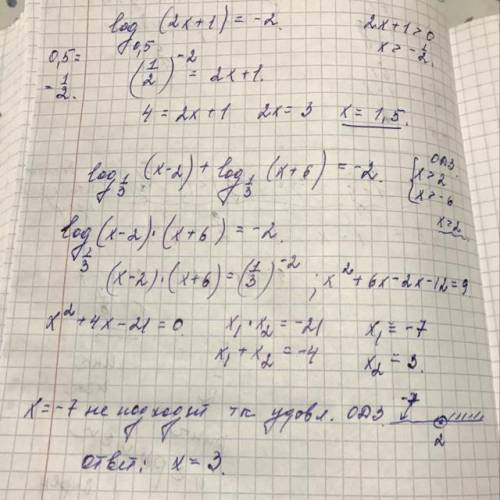 log₀,₅ (2x+1) = -2. 2x+1>0
0,5= x > -1/2.
1/2. (1/2)⁻² = 2x+1.
4 = 2x+1 2x = 3 x = 1,5.
log₁/₃ (x-2) + log₁/₃ (x+6) = -2. { ОДЗ. x>2 x>-6
x>2
log₁/₃ (x-2)·(x+6) = -2.
(x-2)·(x+6) = (1/3)⁻² ; x²+6x-2x-12=9
x²+4x-21=0 x₁·x₂ = -21 x₁ = -7
x₁+x₂ = -4 x₂ = 3.
x=-7 не подходит тк удовл. ОДЗ. -7 2
ответ: x = 3.